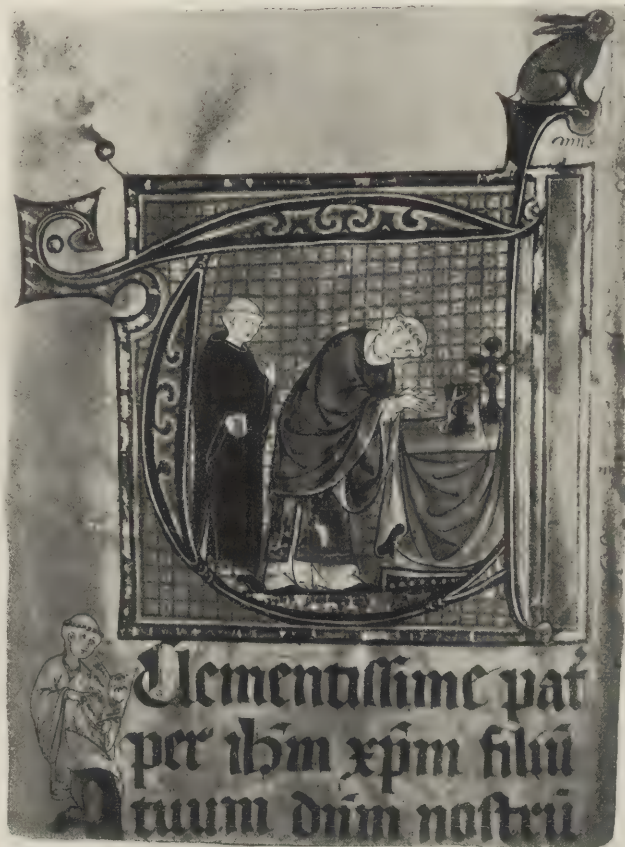 T
Clementissime pat᷑
per ih̄m xp̄m filiū
tuum dn̄m nostrū